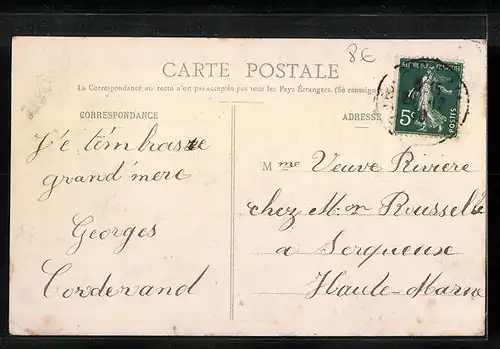 8€
CARTE POSTALE
La Correspondance au recto n'est pas acceptée par tous les Pays Étrangers. (Se renseigner
CORRESPONDANCE
ADRESSE
5c
POSTES
Je t'imbrasse
grand'mere
Georges
Corderand
Mme Veuve Riviere
chez M.on Rousselle
a Serqueux
Haute-Marne